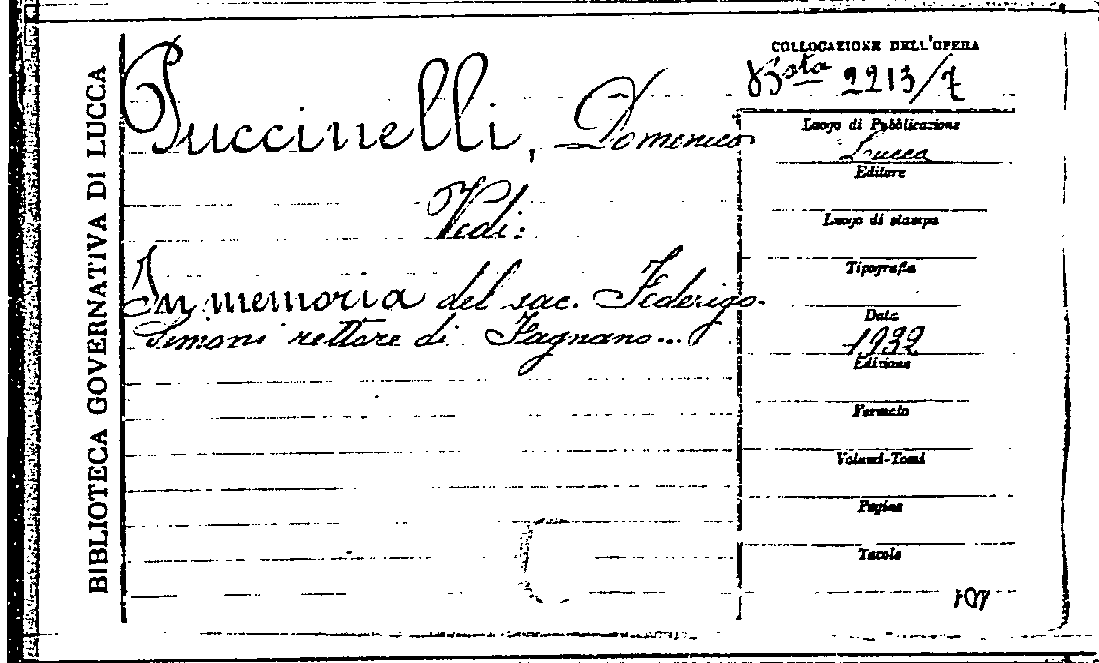 BIBLIOTECA GOVERNATIVA DI LUCCA
Puccinelli, Domenico
Vedi:
In memoria del sac. Federigo
Simoni rettore di Fagnano...
COLLOCAZIONE DELL'OPERA
Bsta 2213/7
Luogo di Pubblicazione
Lucca
Editore
Luogo di stampa
Tipografia
Data
1932
Edizione
Formato
Volumi-Tomi
Pagine
Tavole